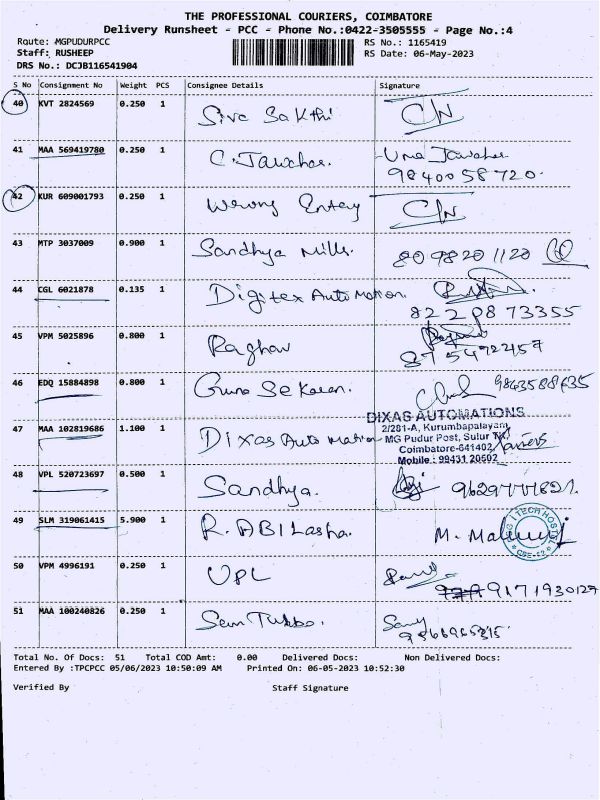 THE PROFESSIONAL COURIERS, COIMBATORE
Delivery Runsheet - PCC - Phone No.:0422-3505555 - Page No.:4
Route: MGPUDURPCC RS No.: 1165419
Staff: RUSHEEP RS Date: 06-May-2023
DRS No.: DCJB116541904
S No Consignment No Weight PCS Consignee Details Signature
40 KVT 2824569 0.250 1 Siva Sakthi C/N
41 MAA 569419780 0.250 1 C. Jawahar. Uma Jawahar
9840058720.
42 KUR 609001793 0.250 1 Wrong Entry C/N
43 MTP 3037009 0.900 1 Sandhya Mills. 8098201120
44 CGL 6021878 0.135 1 Digitex Automation.
82208 73355
45 VPM 5025896 0.800 1 Raghav
8754972457
46 EDQ 15884898 0.800 1 Guna Sekaran.
47 MAA 102819686 1.100 1 Dixas Automation
DIXAS AUTOMATIONS
2/281-A, Kurumbapalayam,
MG Pudur Post, Sulur TK,
Coimbatore-641402
Mobile : 99431 20502
48 VPL 520723697 0.500 1 Sandhya. 9629777821.
49 SLM 319061415 5.900 1 R. ABILasha. M.
50 VPM 4996191 0.250 1 UPL
9171930127
51 MAA 100240826 0.250 1
Total No. Of Docs: 51 Total COD Amt: 0.00 Delivered Docs: Non Delivered Docs:
Entered By :TPCPCC 05/06/2023 10:50:09 AM Printed On: 06-05-2023 10:52:30
Verified By Staff Signature